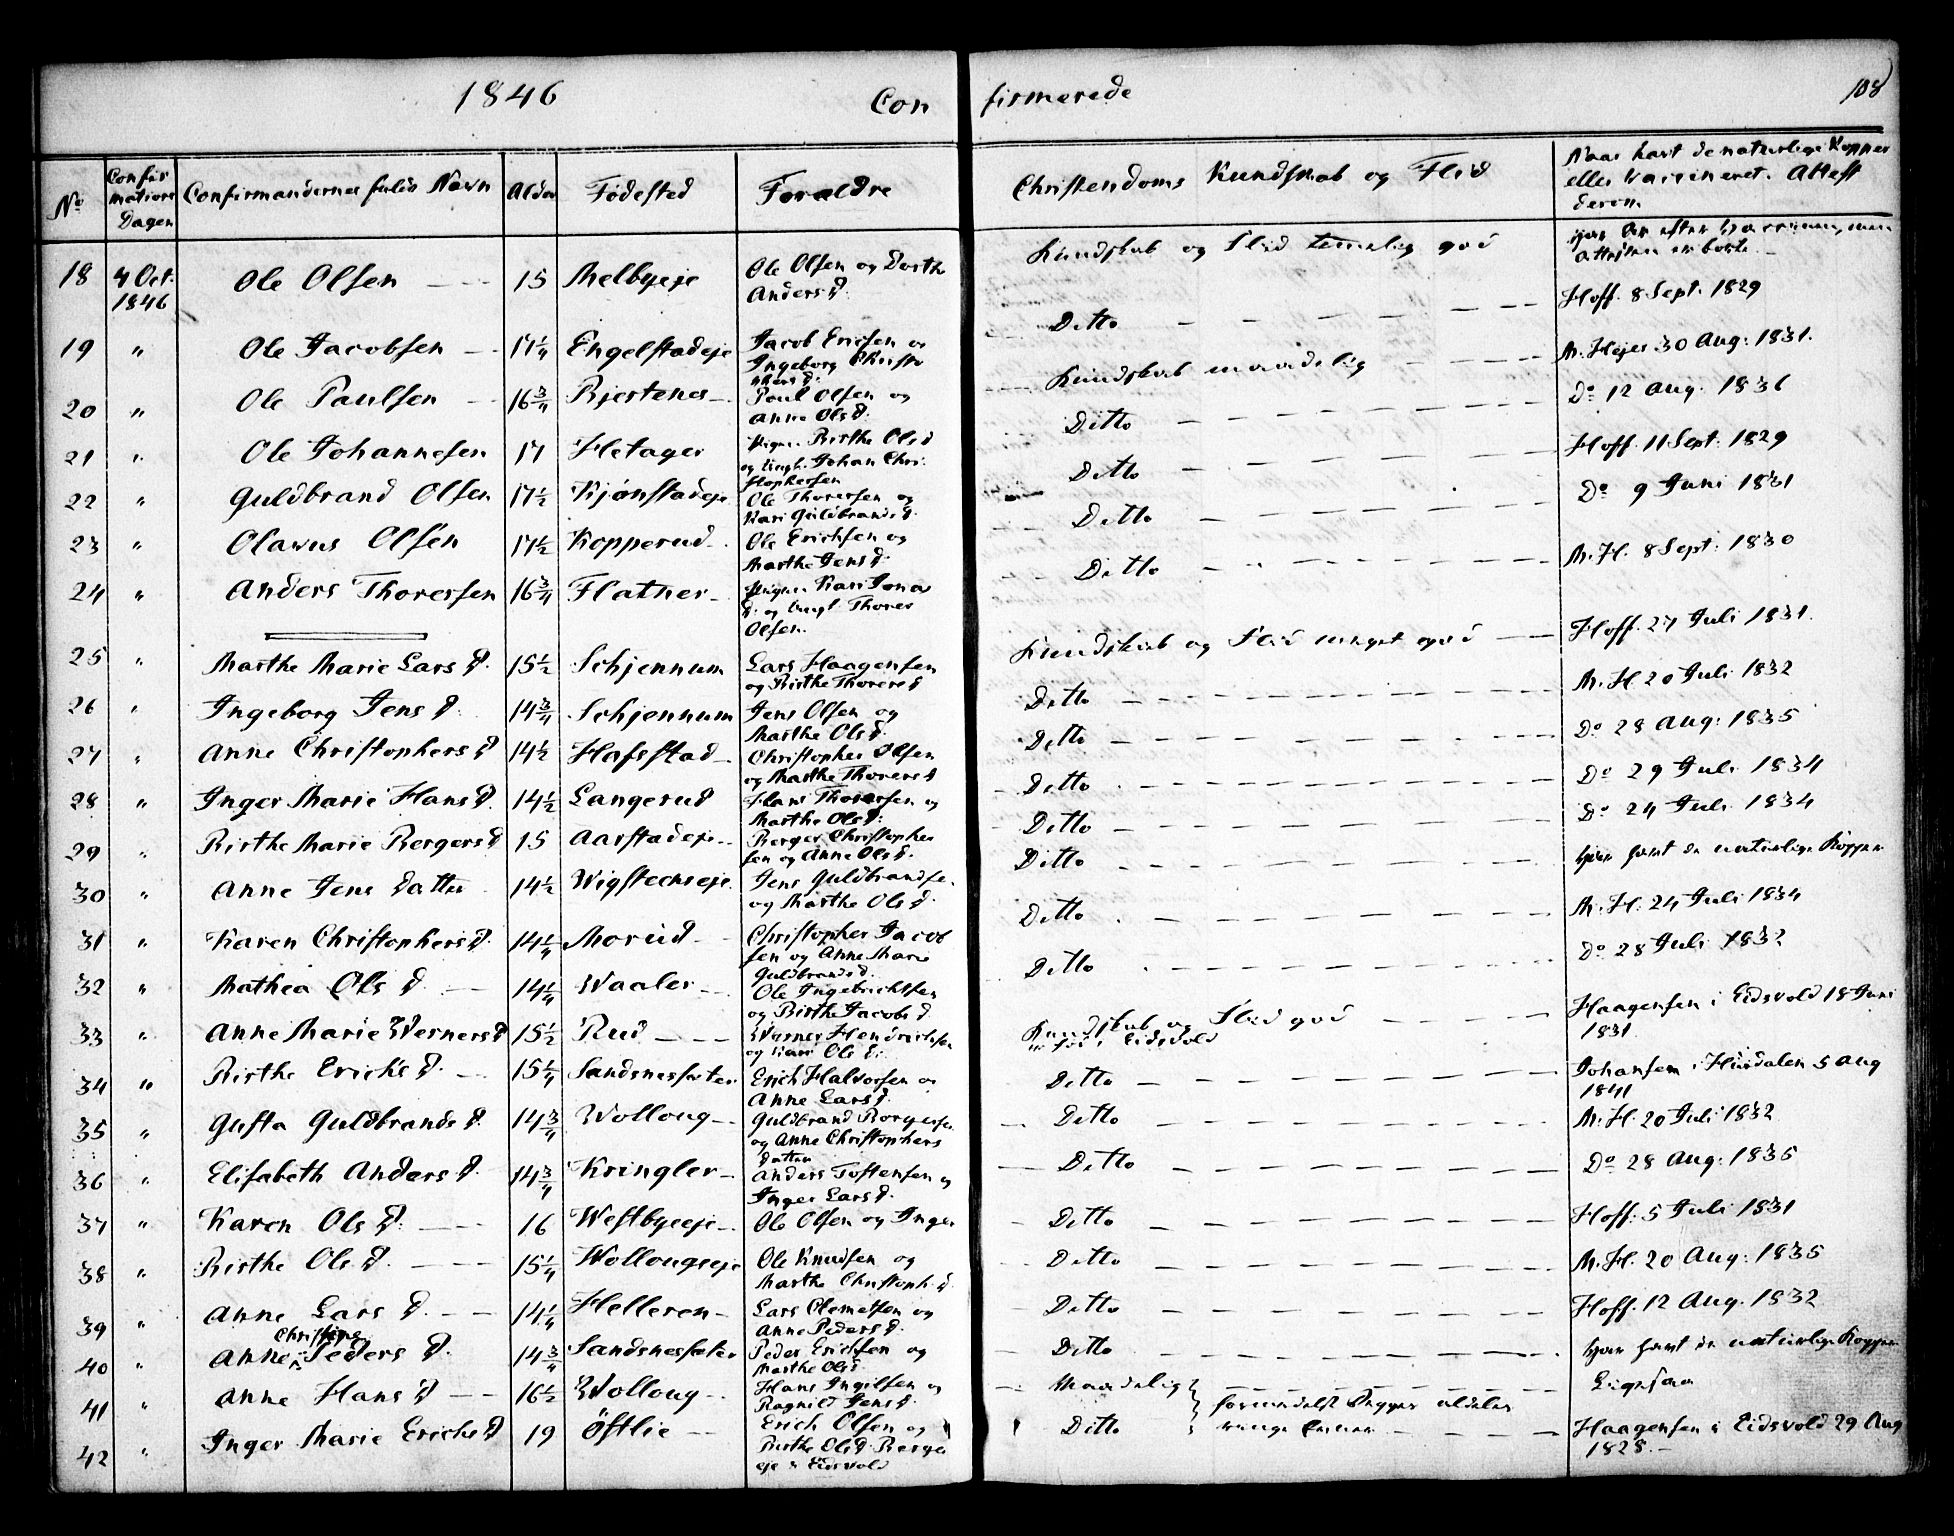 1846 Confirmerede 108
No
Confirmations Dagen
Confirmandernes fulde Navn
Alder
Födested
Foraldre
Christendoms Kundskab og Flid
Naar havt de naturlige Kopper
eller Vaccineret. Attest
derom
18 4 Oct. 1846 Ole Olsen 15 Melbyeje Ole Olsen og Dorthe Anders D. Kundskab og Flid temelig god
Hoff. 8 Sept. 1829
19 " Ole Jacobsen 17 1/4 Engelstadeje Jacob Ericsen og Ingeborg Christophers D. Ditto
M. Hejer 30 Aug: 1831.
20 " Ole Paulsen 16 3/4 Bjertenes Poul Olsen og Anne Ols D. Kundskab maadelig Do 12 Aug. 1836
21 " Ole Johannesen 17 Hetager Pigen Birthe Ols D og Ungk. Johan Christophersen Ditto Hoff. 11 Sept: 1829
22 " Guldbrand Olsen 17 1/2 Kjönstadeje Ole Thoresen og Kari Guldbrands D. Ditto Do 9 Juni 1831
23 " Olavus Olsen 17 1/2 Kopperud Ole Erichsen og Marthe Jens D. Ditto M. H. 8 Sept: 1830
24 " Anders Thoressen 16 3/4 Flather Pigen Kari Jona D. og Ungk. Thores Olsen. Ditto Hoff. 27 Juli 1831.
25 " Marthe Marie Lars D. 15 1/2 Schjennum Lars Haagensen og Birthe Thores D Kundskab og Flid meget god M. H. 20 Juli 1832
26 " Ingeborg Jens D. 14 3/4 Schjennum Jens Olsen og Marthe Ols D. Ditto Do 28 Aug: 1835
27 " Anne Christophers D 14 1/2 Hafsstad Christopher Olsen og Marthe Thores D Ditto Do 29 Juli 1834
28 " Inger Marie Hans D. 14 1/2 Langerud Hans Thoresen og Marthe Ols D: Ditto Do 24 Juli 1834
29 " Birthe Marie Bergers D 15 Aarstadeje Berger Christophersen og Anne Ols D. Ditto har havt de naturlige Kopper
30 " Anne Jens Datter 14 1/2 Wigstechseje Jens Guldbrandse. og Marthe Ols D. Ditto M. H. 24 Juli 1834
31 " Karen Christophers D. 14 1/4 Morud Christopher Jacobsen og Anne Marie Guldbrands D. Ditto Do 28 Juli 1832
32 " Mathea Ols D. 14 1/4 Waaler Ole Ingebrichtsen og Birthe Jacobs D. Ditto
Haagensen i Eidsvold 18 Juni 1831
33 " Anne Marie Werners D 15 1/2 Rud Werner Hendrichsen og Kari Ols D. Kundskab og Flid god
Eidsvold
34 " Birthe Erichs D. 15 1/4 Sandsnesseter Erich Halvorsen og Anne Lars D. Ditto Johansen i Hurdalen 5 Aug 1841
35 " Gusta Guldbrands D. 14 3/4 Wolloug Guldbrand Borgersen og Anne Christophers datter Ditto M. H. 20 Juli 1832
36 " Elisabeth Anders D. 14 3/4 Kringler Anders Toftensen og Inger Lars D. Ditto Do 28 Aug: 1835
37 " Karen Ols D. 16 Westbyeeje Ole Olsen og Inger Ditto Hoff: 5 Juli 1831
38 " Birthe Ols D. 15 1/4 Wollougseje Ole Knudsen og Marthe Christoph. D. Ditto M. H. 20 Aug: 1835
39 " Anne Lars D. 14 1/4 Helleren Lars Clemetsen og Anne Peders D. Ditto Hoff. 12 Aug. 1832
40 " Anne Christine Peders D. 14 3/4 Sandsnesseter Peder Erichsen og Marthe Ols D. Ditto har havt de naturlige Kopper
41 " Anne Hans D 16 1/2 Wolloug Hans Ingilsen og Ragnild Jens D. Maadelig Ligesaa
42 " Inger Marie Erichs D 19 Östlie Erich Olsen og Birthe Ols D Berger eje i Eidsvold Ditto
ringe Evner
Haagensen i Eidsvold 29 Aug 1828.